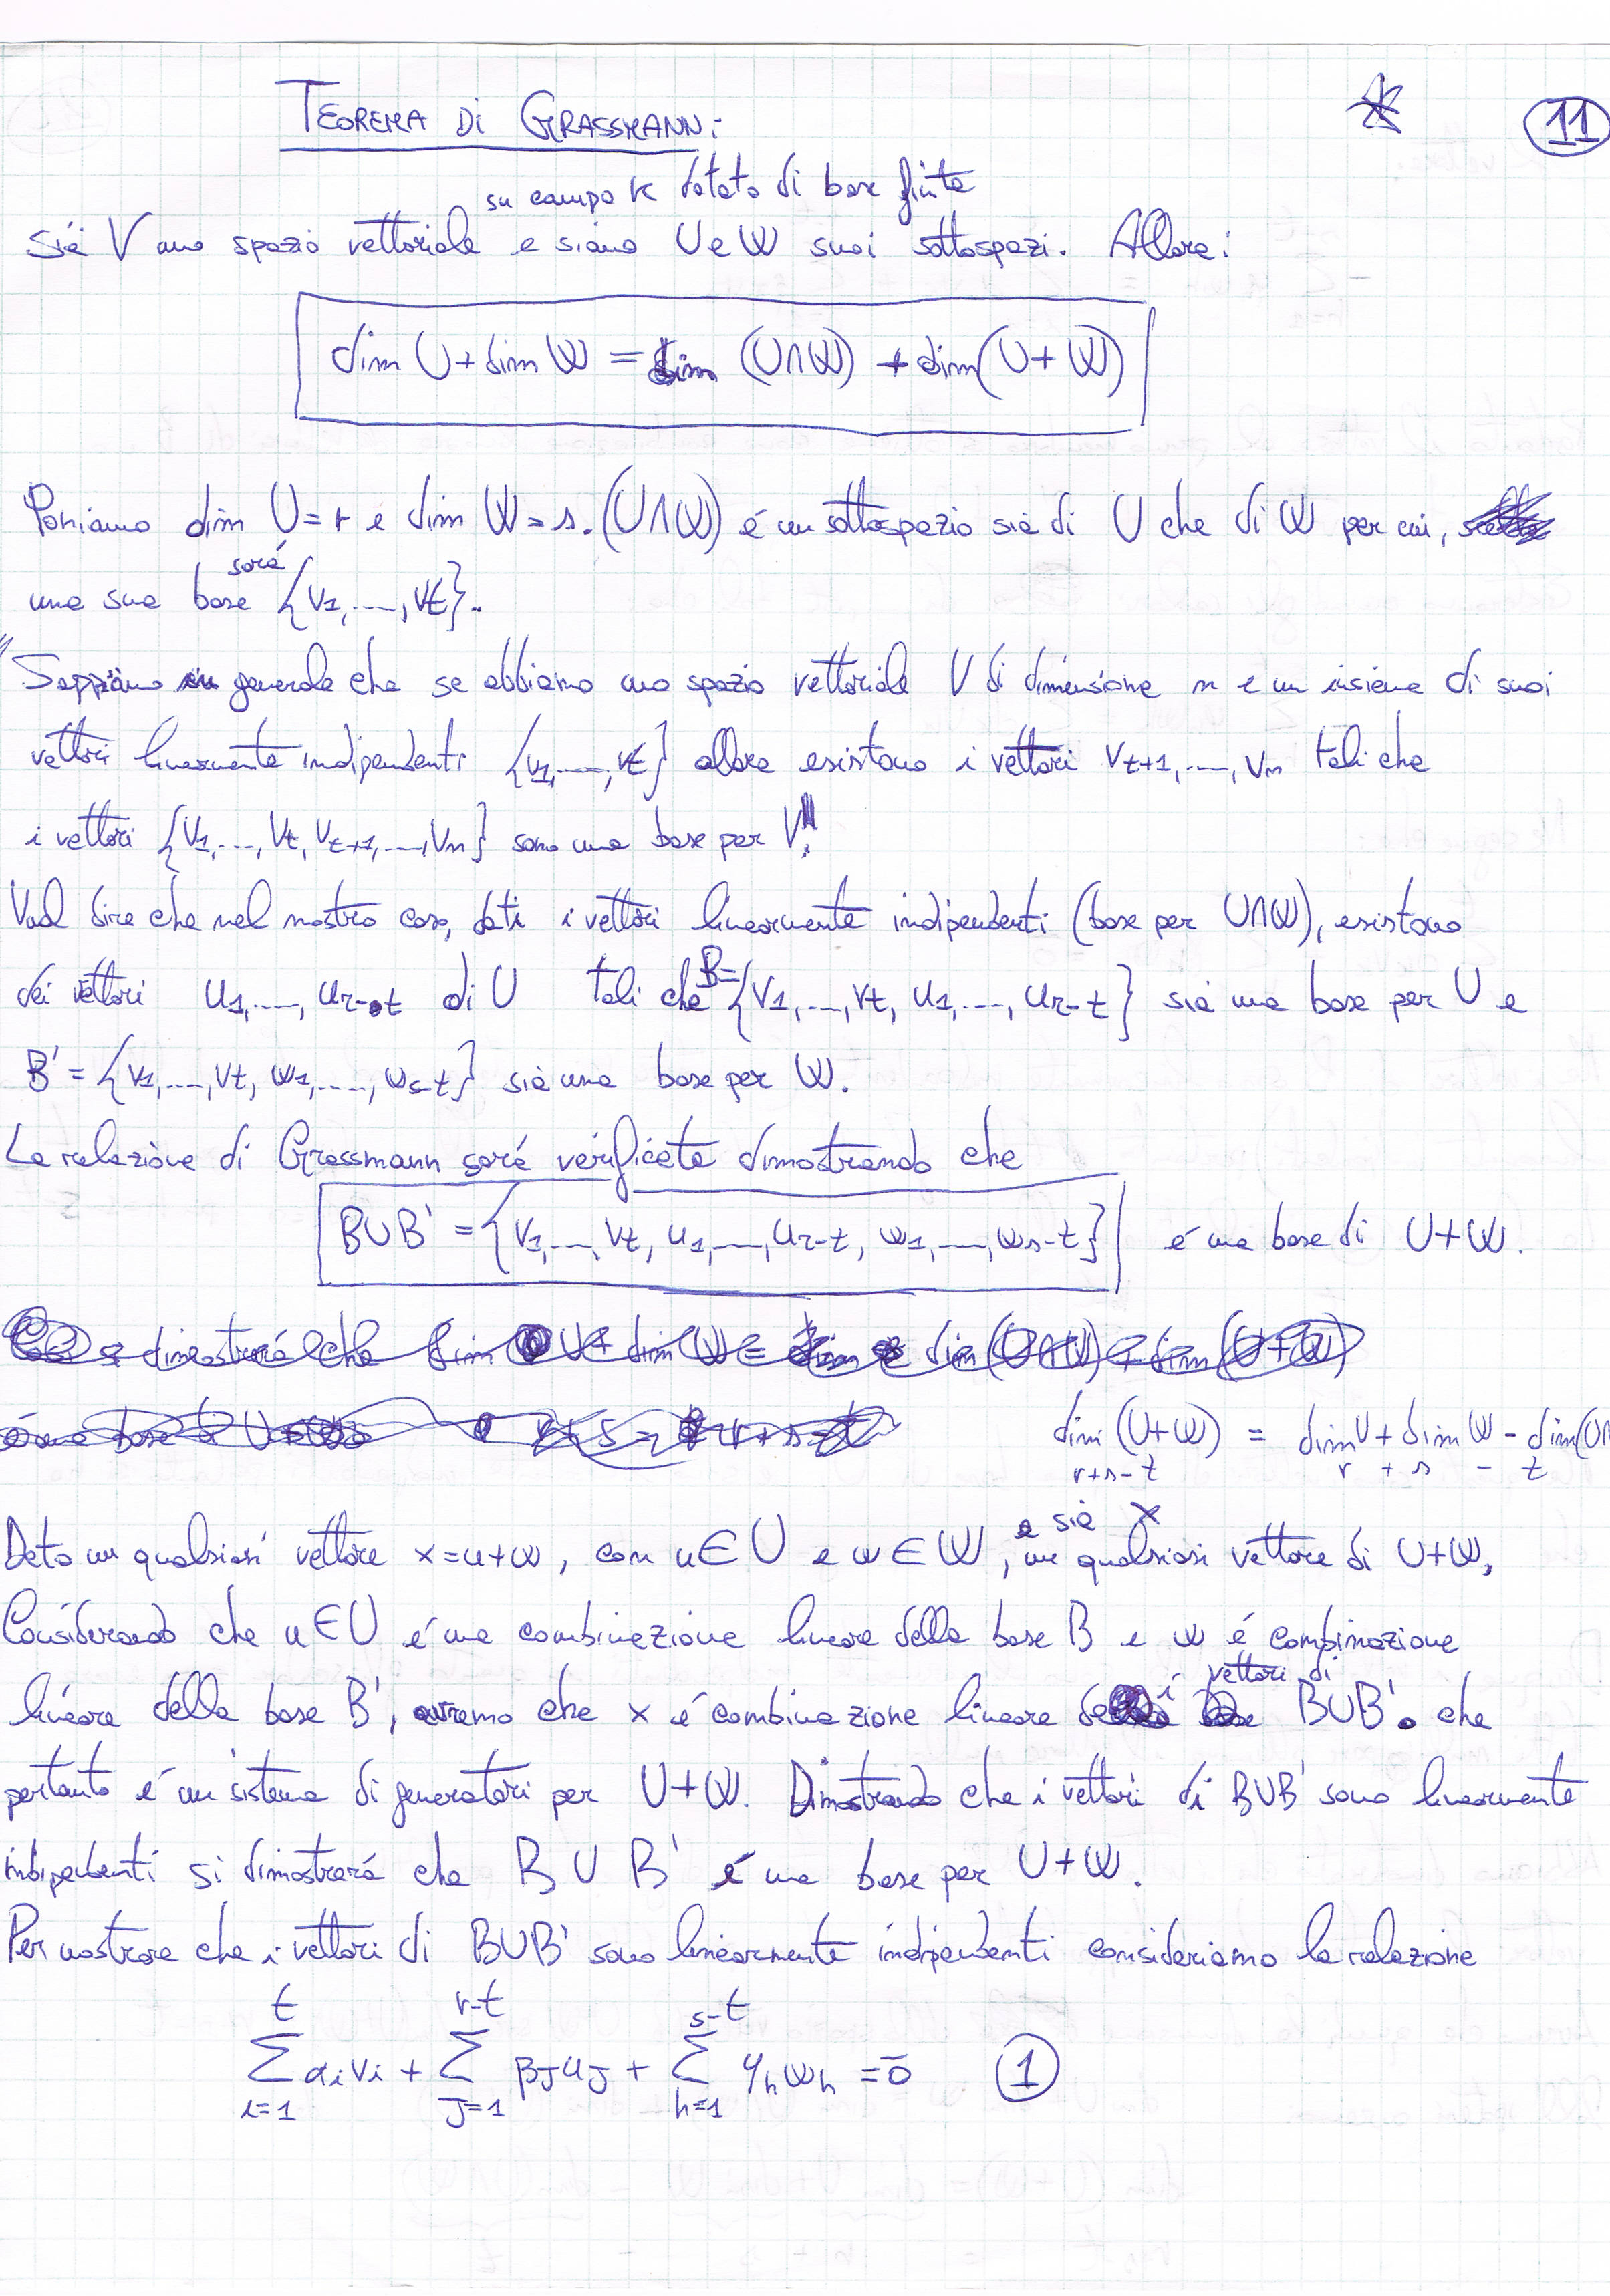 TEOREMA DI GRASSMANN:
11
su campo K dotato di base finita
Sia V uno spazio vettoriale e siano U e W suoi sottospazi. Allora:
dim U + dim W = dim (U∩W) + dim(U + W)
Poniamo dim U = r e dim W = s. (U∩W) é un sottospazio sia di U che di W per cui,
sará
una sua base {v1, ..., vt}.
"Sappiamo in generale che se abbiamo uno spazio vettoriale V di dimensione n e un insieme di suoi
vettori linearmente indipendenti {v1, ..., vt} allora esistono i vettori vt+1, ..., vn tali che
i vettori {v1, ..., vt, vt+1, ..., vn} sono una base per V."
Vuol dire che nel nostro caso, dati i vettori linearmente indipendenti (base per U∩W), esistono
dei vettori u1, ..., ur-t di U tali che B={v1, ..., vt, u1, ..., ur-t} sia una base per U e
B' = {v1, ..., vt, w1, ..., ws-t} sia una base per W.
La relazione di Grassmann sará verificata dimostrando che
B∪B' = {v1, ..., vt, u1, ..., ur-t, w1, ..., ws-t} é una base di U+W.
dim (U+W) = dim U + dim W - dim(U∩
r+s-t r + s - t
e sia x
Dato un qualsiasi vettore x=u+w, con u∈U e w∈W, un qualsiasi vettore di U+W,
Considerando che u∈U é una combinazione lineare della base B e w é combinazione
vettori di
lineare della base B', avremo che x é combinazione lineare i B∪B'. che
pertanto é un sistema di generatori per U+W. Dimostrando che i vettori di B∪B' sono linearmente
indipendenti si dimostrerá che B ∪ B' é una base per U+W.
Per mostrare che i vettori di B∪B' sono linearmente indipendenti consideriamo la relazione
t r-t s-t
∑ αivi + ∑ βJuJ + ∑ φhwh = 0̄ 1
i=1 J=1 h=1